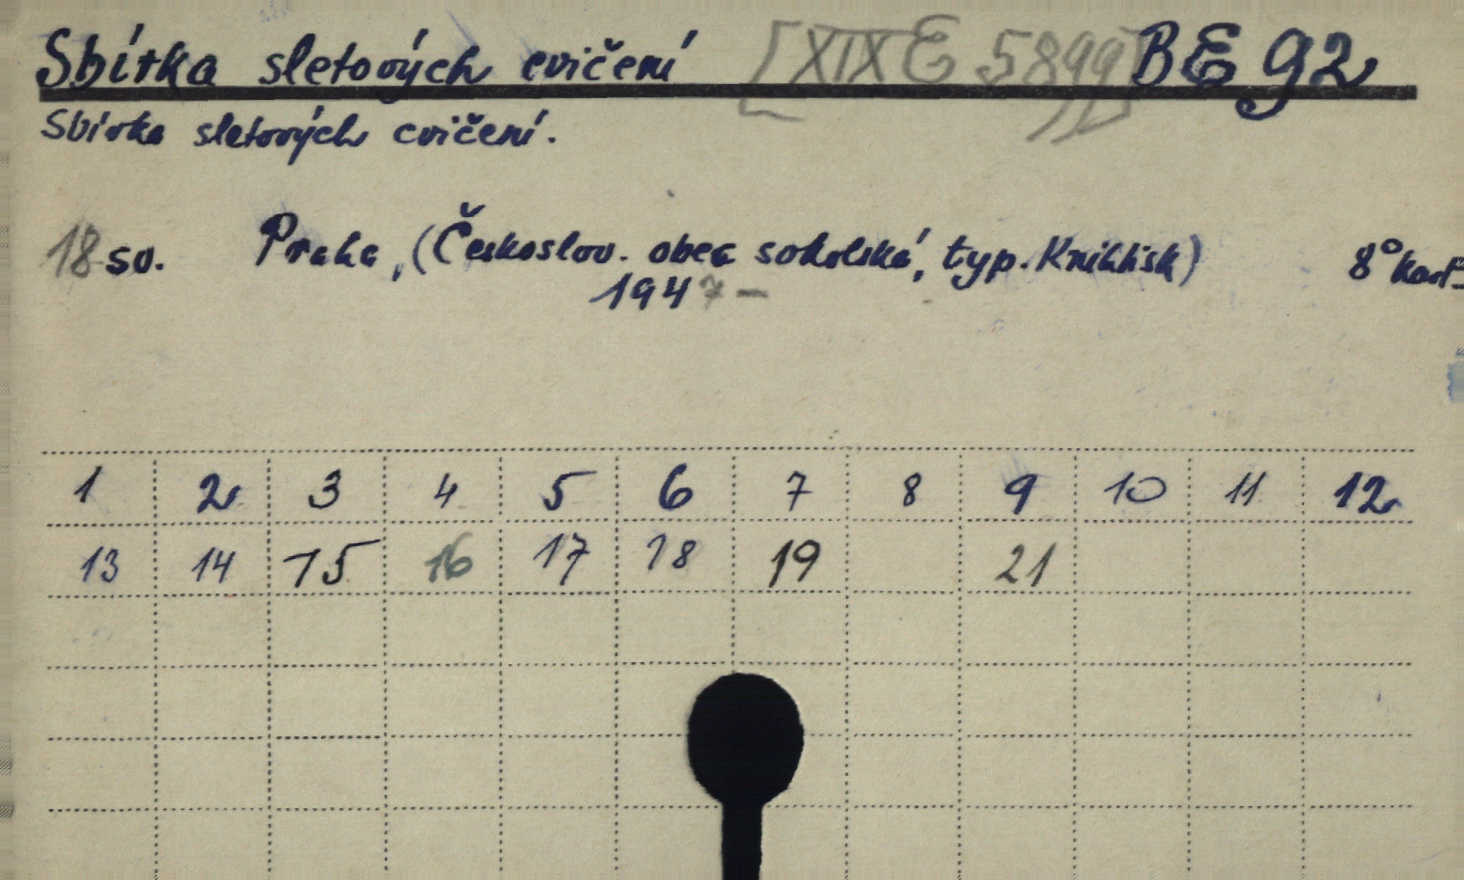 Sbírka sletových cvičení [XIX E 5899] BE 92
Sbírka sletových cvičení.
18 sv. Praha, (Českoslov. obec sokolská, typ. Knihtisk) 8° kart
1947 –
1 2 3 4 5 6 7 8 9 10 11 12
13 14 15 16 17 18 19 21